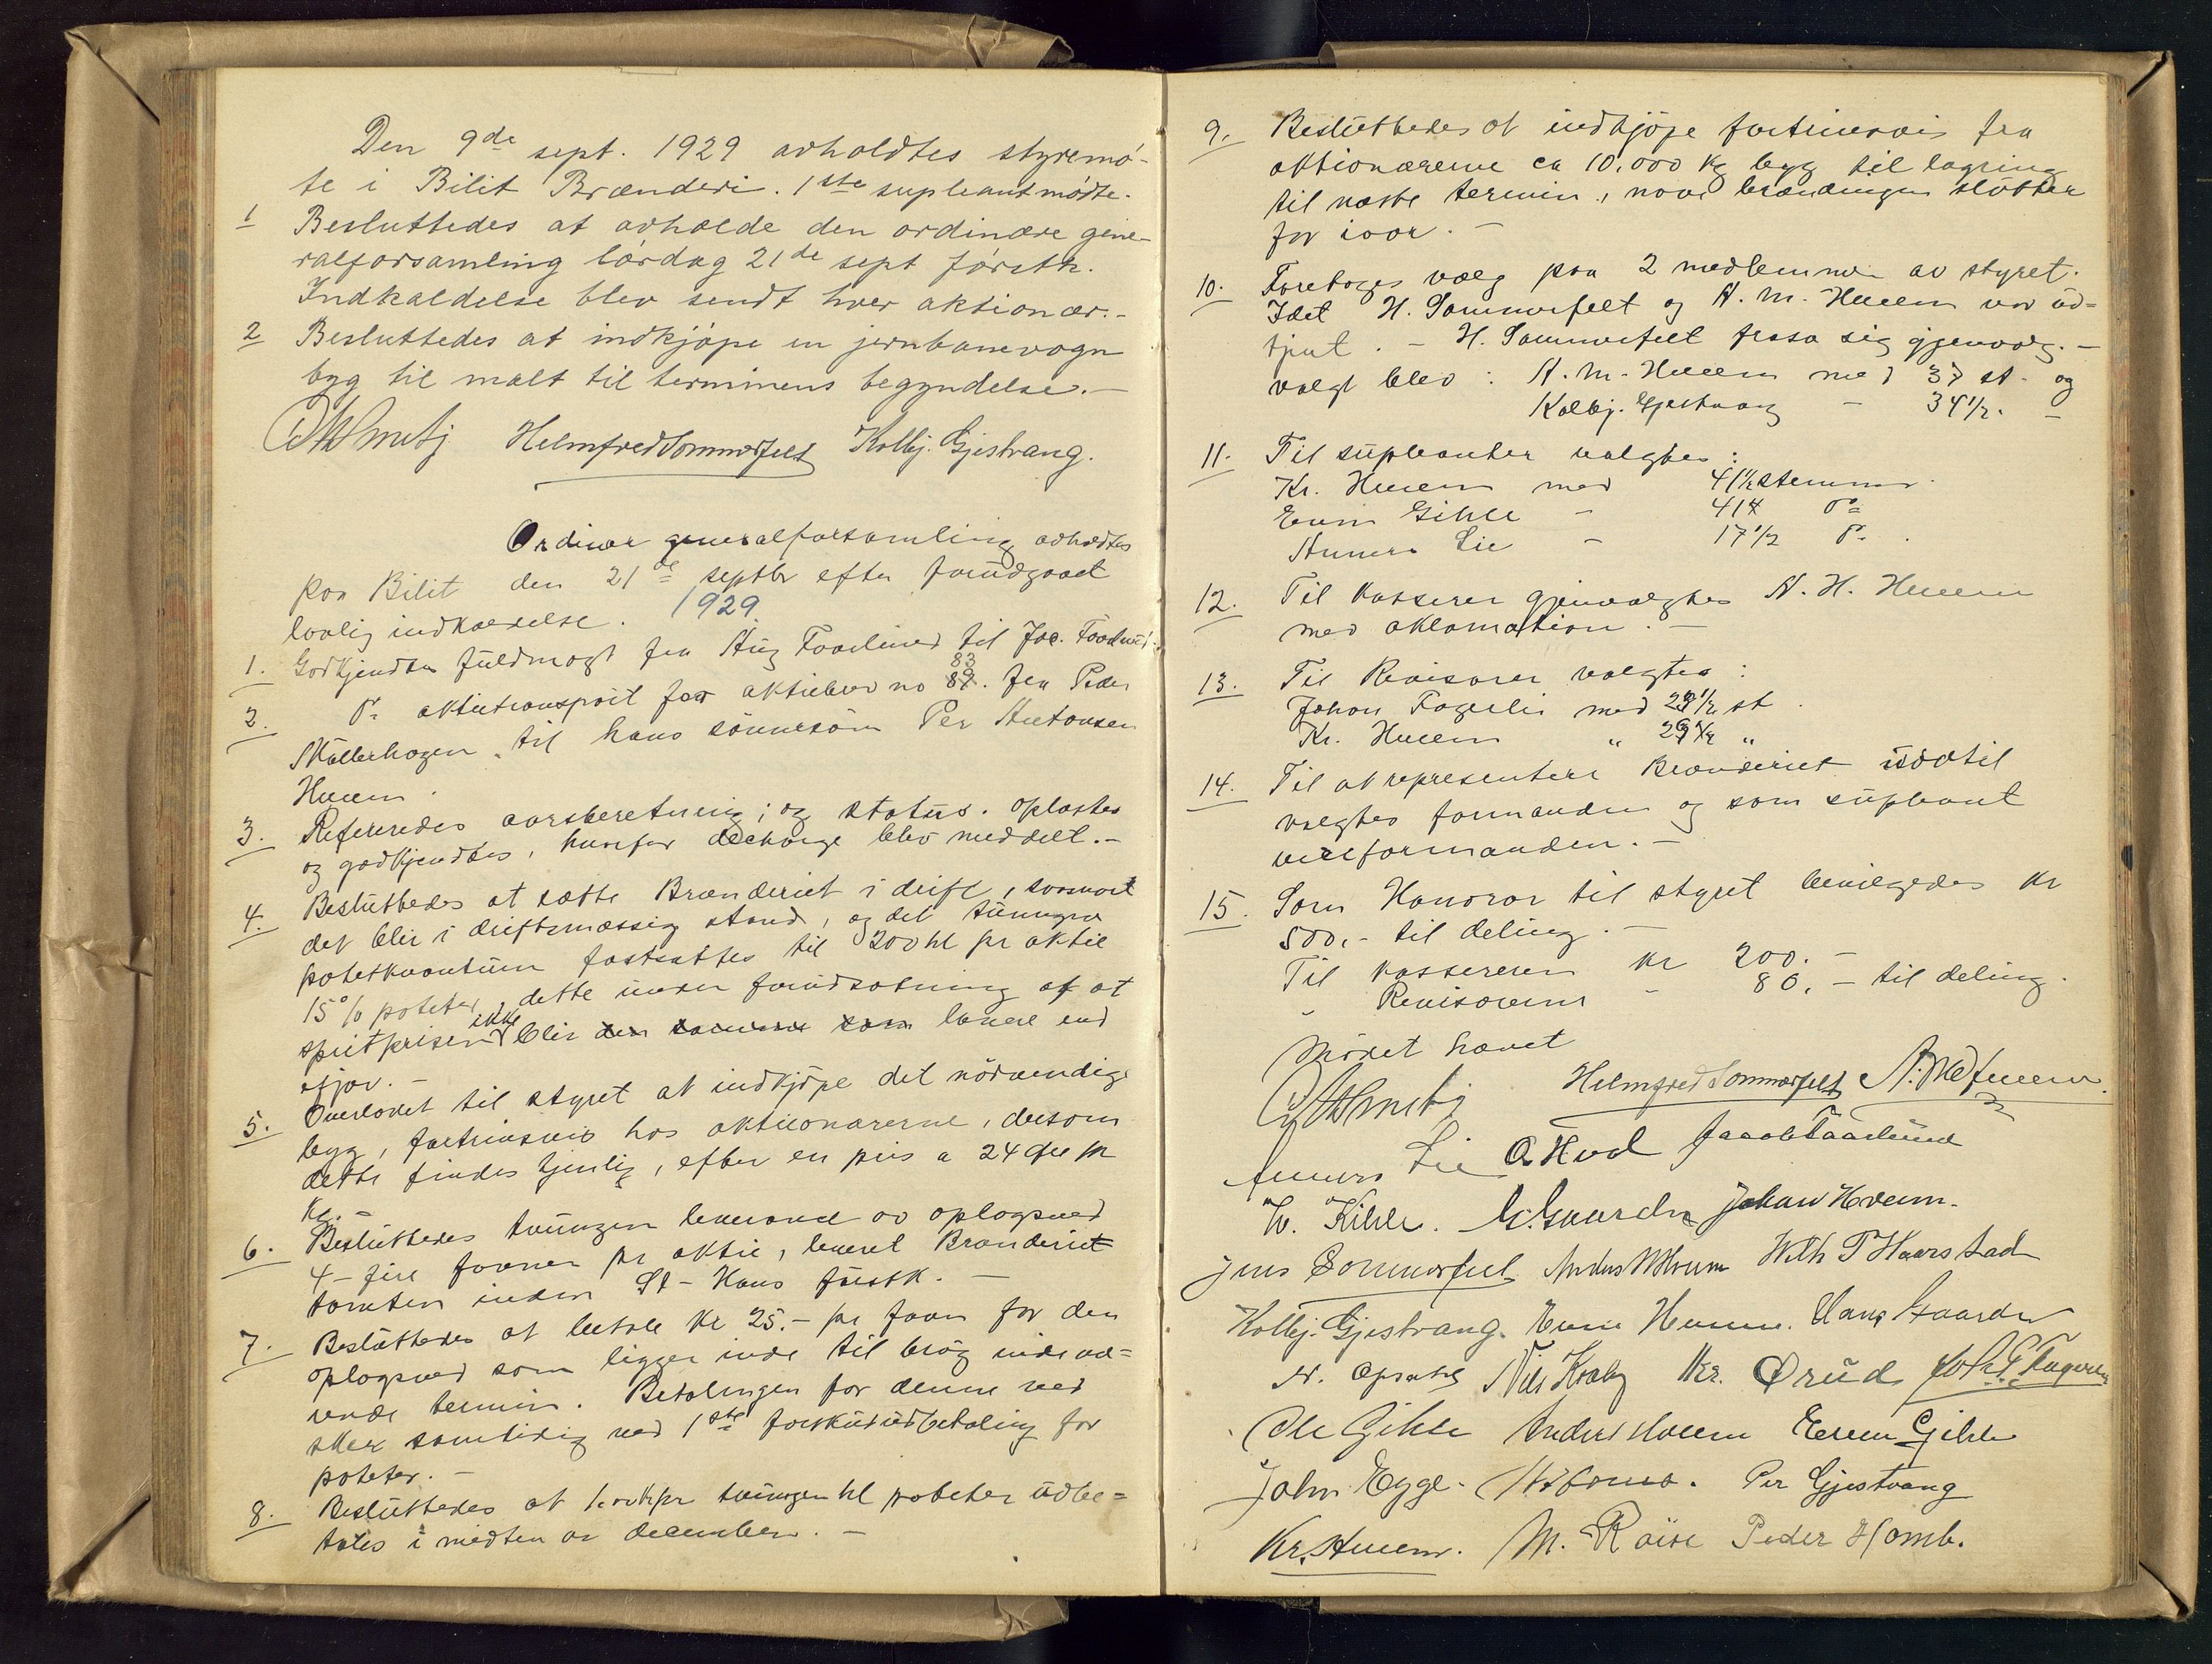 Den 9de sept. 1929 avholdtes styremø-
te i Bilit Brænderi. 1ste supleant mødte.
1 Besluttedes at avholde den ordinære gene-
ralforsamling lørdag 21de sept førstk.
Indkaldelse blev sendt hver aktionær.-
2 Besluttedes at indkjøpe en jernbanevogn
byg til malt til terminens begyndelse.-
Helmfred Sommerfelt Kolbj. Gjestvang.
Ordinær generalforsamling avholdtes
paa Bilit den 21de septbr efter forudgaaet
lovlig indkaldelse. 1929.
1. Godkjendtes fuldmagt fra Aug Faarlund til Jac. Faarlund.
2. Do aktietransport for aktiebrev no 83. fra Peder
Møllerhagen til hans sønnesøn Per Antonsen
Hveem.
3. Refereredes aarsberetning; og status. oplæstes
og godkjendtes, hvorfor decharge blev meddelt.-
4. Besluttedes at sætte Brænderiet i drift, saasnart
det blir i driftsmæssig stand, og det tvungne
potetkvantum fastsættes til 200 hl pr aktie
15% poteter, dette under forudsætning af at
spritprisen ikke blir den samme som lavere end
ifjor.-
5. Overlodes til styret at indkjøpe det nødvendige
byg, fortrinsvis hos aktionærerne, dersom
dette findes tjenlig, efter en pris a 24 øre pr
kg.-
6. Besluttedes tvungen leverance av oplagsved
4-fire favner pr aktie, leveret Brænderiet
tomten inden St-Hans førstk.-
7. Besluttedes at betale kr 25.- pr favn for den
oplagsved som ligger inde til brug indevæ=
rende termin. Betalingen for denne ved
sker samtidig med 1ste forskudsutbetaling for
poteter.-
8. Besluttedes at 1. pr tvungen hl poteter udbe=
tales i midten av december.-
9. Besluttedes at indkjøpe fortrinsvis fra
aktionærerne ca 10.000 kg byg til lagring
til næste termin, naar brændingen slutter
for iaar.-
10. Foretoges valg paa 2 medlemmer av styret.
Idet H. Sommerfelt og A. M. Hveem var ud=
tjent.- H. Sommerfelt frasa sig gjenvalg.-
valgt blev: A. M. Hveem med 37 st. og
Kolbj. Gjestvang - 34½. -
11. Til supleanter valgtes:
Kr. Hveem med 41½ stemmer.
Even Gihle - 41 do
Anners Lie - 17½ do.
12. Til kasserer gjenvalgtes A. H. Hveem
med aklamation.-
13. Til Revisorer valgtes:
Johan Fagerli med 29½ st.
Kr. Hveem " 29½ "
14. Til at representere Brænderiet
valgtes formanden og som supleant
viceformanden.-
15. Som Honorar til styret bevilgedes kr
500,- til deling.-
Til kassereren kr 200.-
" Revisorerne - 80.- til deling.
Mødet hævet
Helmfred Sommerfelt A. M. Hveem.
Anners Lie O Hvd Jacob Faarlund
W. Kihle. G. Gaarder Johan Hveem.
Jens Sommerfelt Wilh T Haarstad
Kolbj. Gjestvang. Hans Gaarder
Nils Kraby Kr. Ørud Joh. P. Fagerli
Ole Gihle Anders Hveem Even Gihle
John Egge. Per Gjestvang
Kr. Hveem. M. Røise Peder Homb.